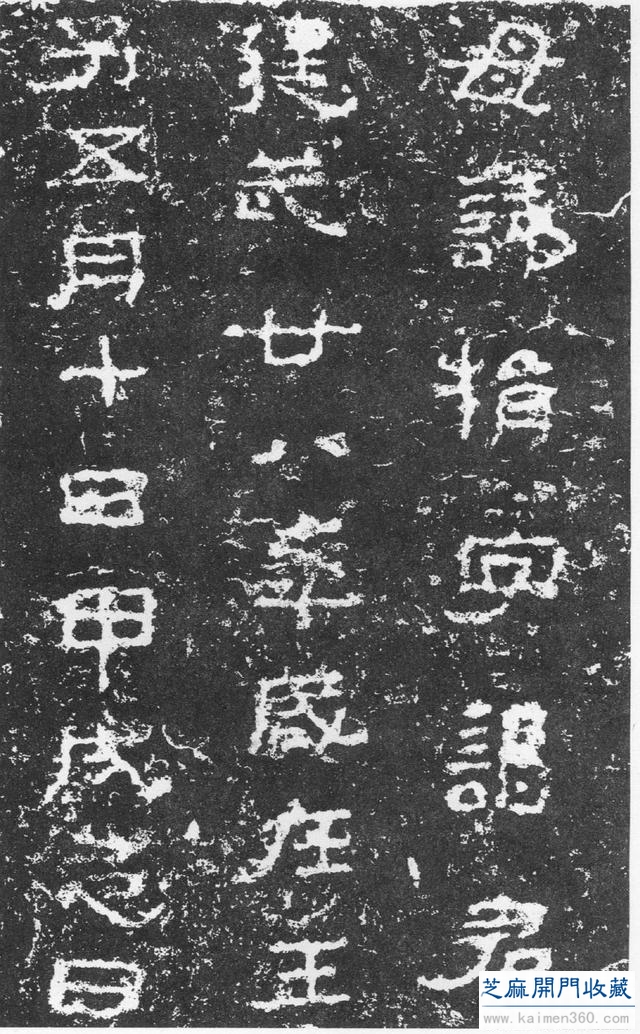 母諱捐字謁君
建武廿八年歲在壬
子五月十日甲戌忌日
芝麻開門收藏
www.kaimen360.com